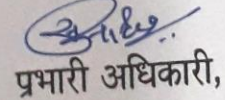 प्रभारी अधिकारी,